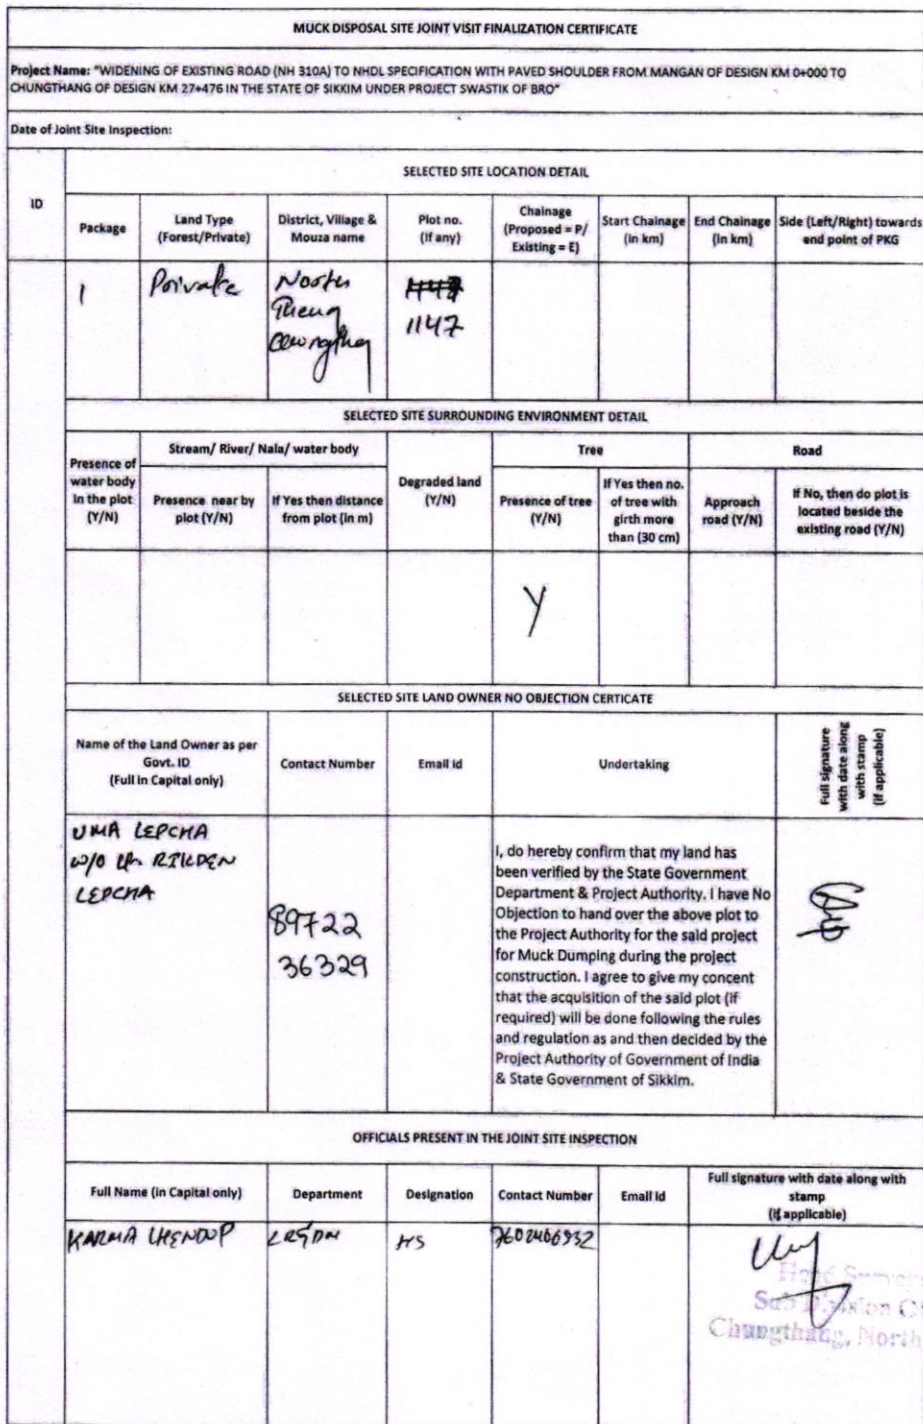 MUCK DISPOSAL SITE JOINT VISIT FINALIZATION CERTIFICATE
Project Name: "WIDENING OF EXISTING ROAD (NH 310A) TO NHDL SPECIFICATION WITH PAVED SHOULDER FROM MANGAN OF DESIGN KM 0+000 TO
CHUNGTHANG OF DESIGN KM 27+476 IN THE STATE OF SIKKIM UNDER PROJECT SWASTIK OF BRO"
Date of Joint Site Inspection:
ID
SELECTED SITE LOCATION DETAIL
Package
Land Type
(Forest/Private)
District, Village &
Mouza name
Plot no.
(If any)
Chainage
(Proposed = P/
Existing = E)
Start Chainage
(in km)
End Chainage
(in km)
Side (Left/Right) towards
end point of PKG
1
Private
North
Theng
1147
SELECTED SITE SURROUNDING ENVIRONMENT DETAIL
Presence of
water body
in the plot
(Y/N)
Stream/ River/ Nala/ water body
Presence near by
plot (Y/N)
If Yes then distance
from plot (in m)
Degraded land
(Y/N)
Tree
Presence of tree
(Y/N)
If Yes then no.
of tree with
girth more
than (30 cm)
Road
Approach
road (Y/N)
If No, then do plot is
located beside the
existing road (Y/N)
Y
SELECTED SITE LAND OWNER NO OBJECTION CERTICATE
Name of the Land Owner as per
Govt. ID
(Full in Capital only)
Contact Number
Email id
Undertaking
Full signature
with date along
with stamp
(if applicable)
UMA LEPCHA
W/O RIKDEN
LEPCHA
89722
36329
I, do hereby confirm that my land has
been verified by the State Government
Department & Project Authority. I have No
Objection to hand over the above plot to
the Project Authority for the said project
for Muck Dumping during the project
construction. I agree to give my concent
that the acquisition of the said plot (if
required) will be done following the rules
and regulation as and then decided by the
Project Authority of Government of India
& State Government of Sikkim.
OFFICIALS PRESENT IN THE JOINT SITE INSPECTION
Full Name (in Capital only)
Department
Designation
Contact Number
Email id
Full signature with date along with
stamp
(if applicable)
KARMA LHENDUP
HS
7602466932
Sub Division
Chungthang, North